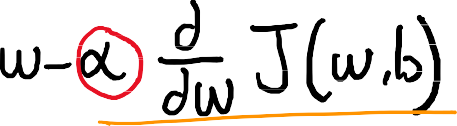 w-α d/dw J(w,b)